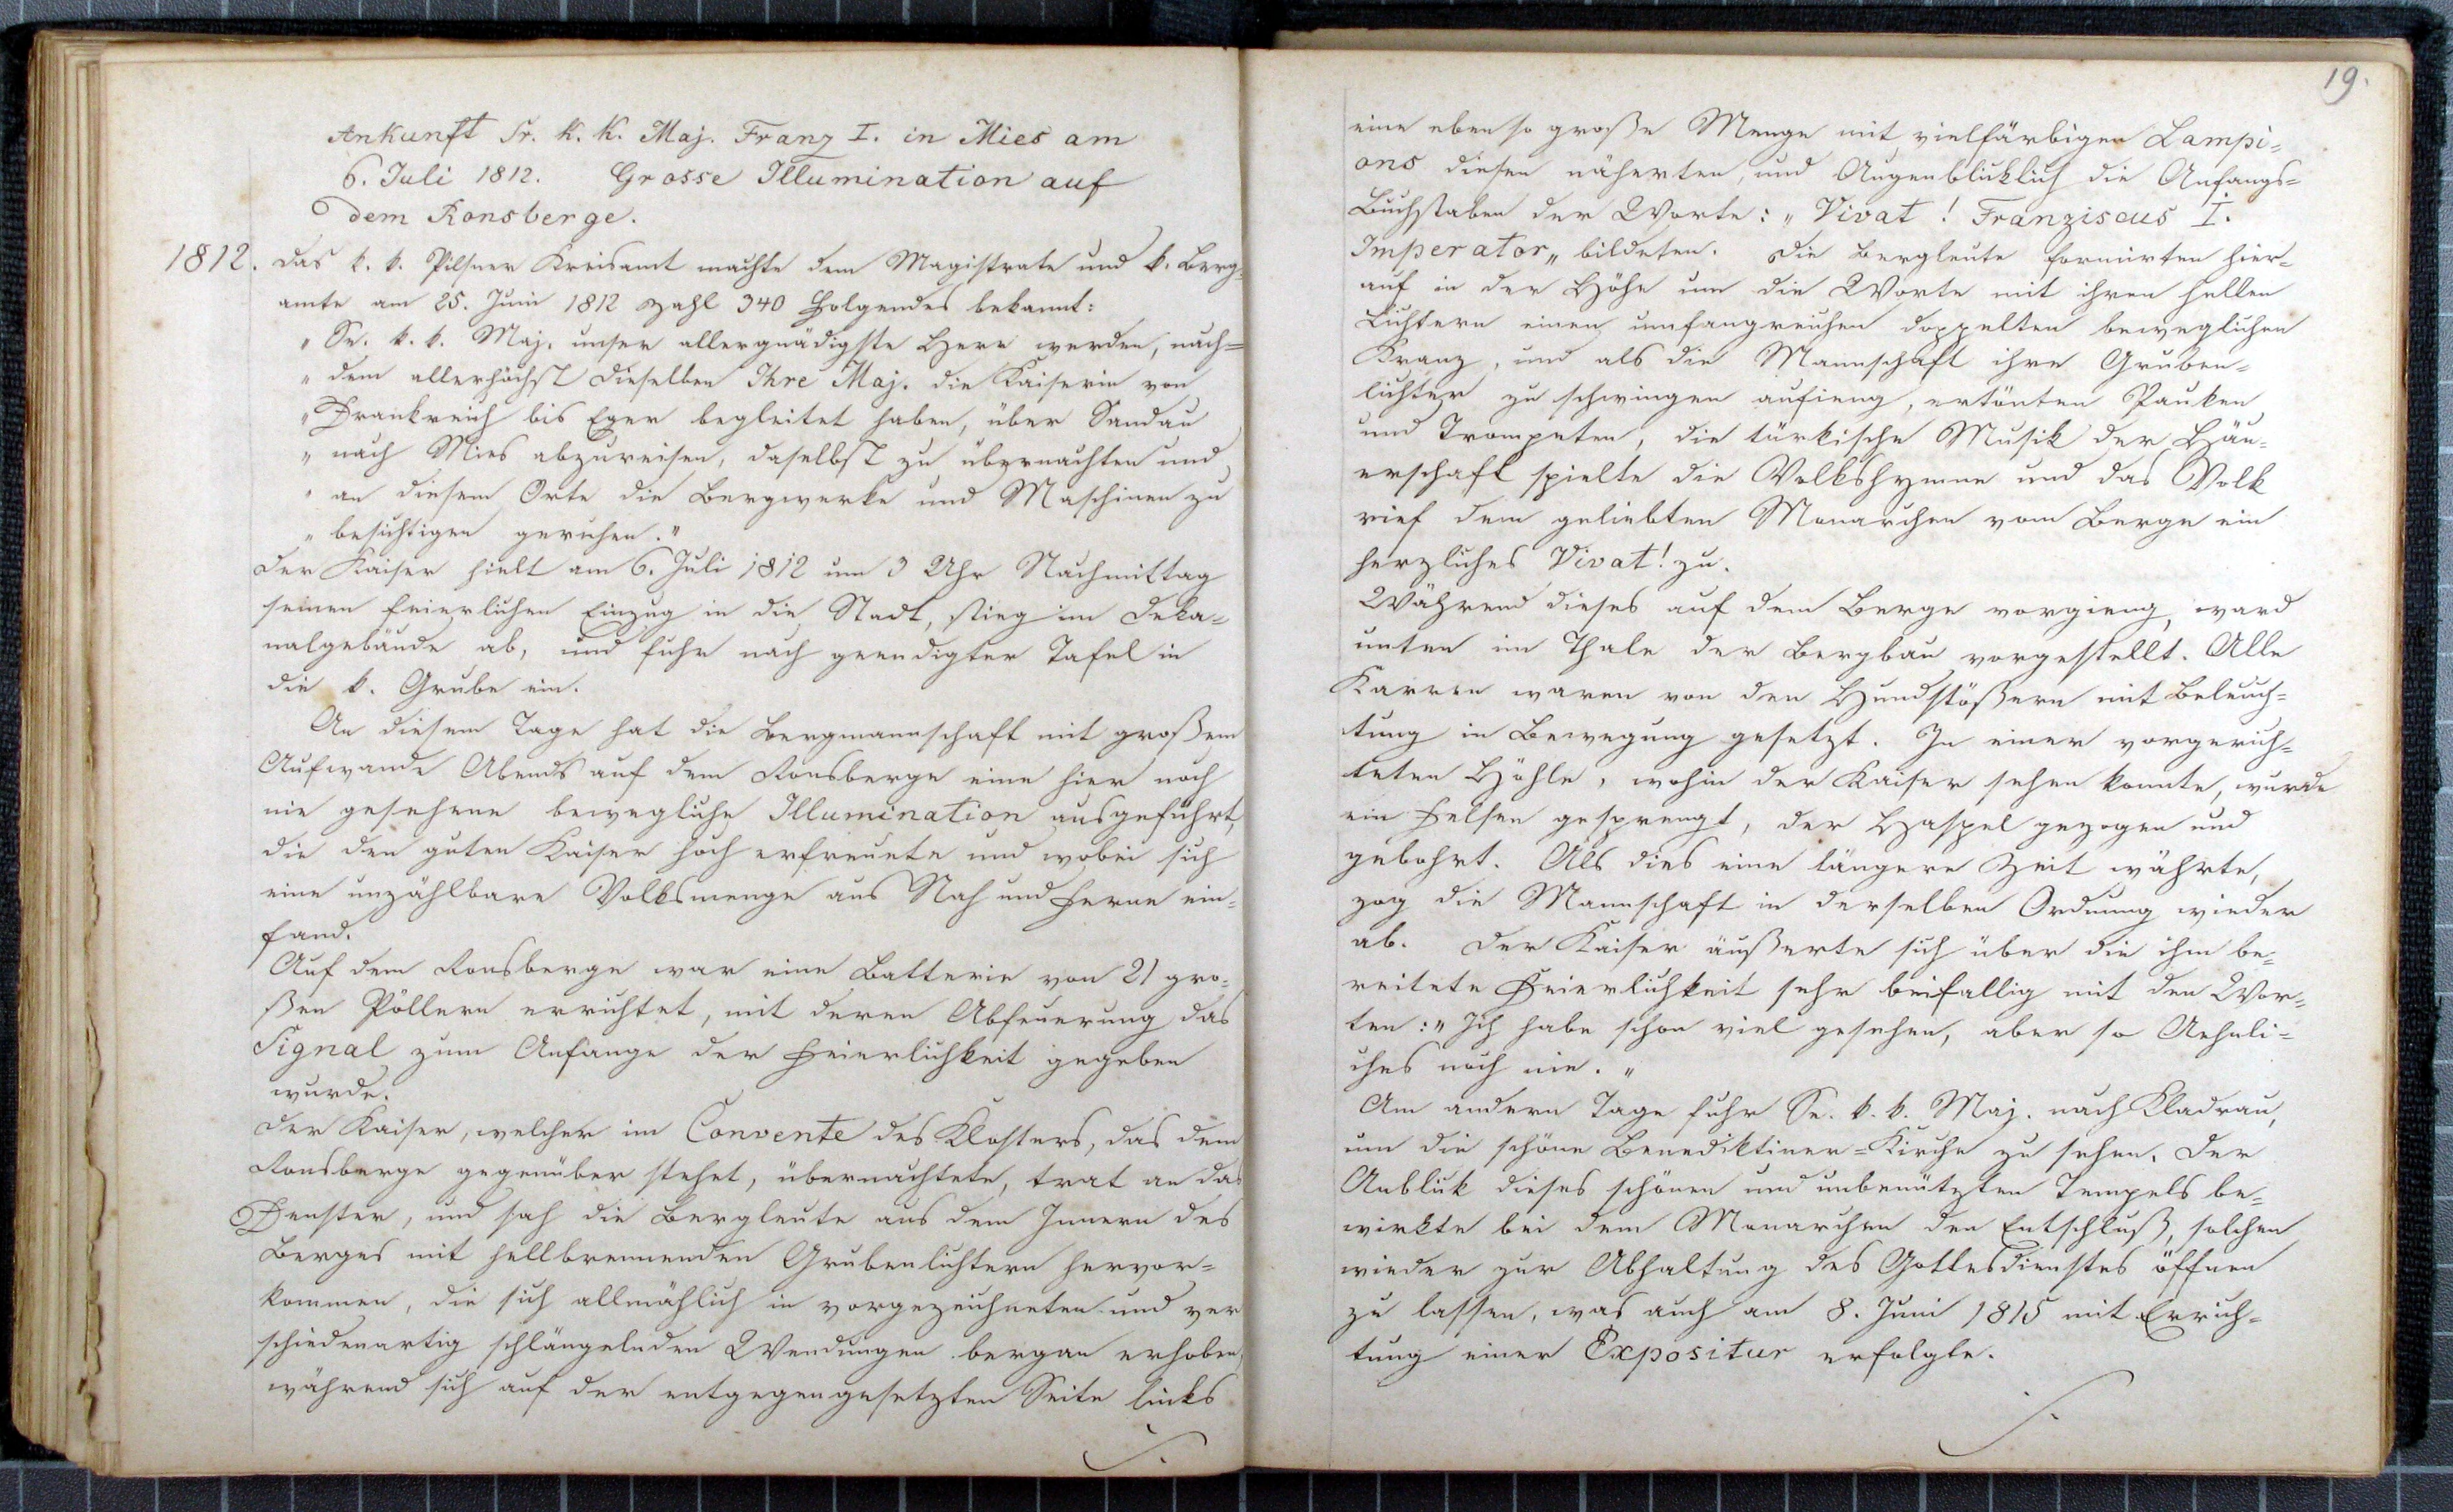 Ankunft Sr. k. k. Maj. Franz I. in Mies am
6. Juli 1812. Grosse Illumination auf
dem Ronsberge.
1812. Das k. k. Pilsner Kreisamt machte dem Magistrate und k. Berg-
amte am 25. Juni 1812 Zahl 340 Folgendes bekannt:
„Se. k. k. Maj. unser allergnädigste Herr werden, nach=
„dem allerhöchst dieselben Ihre Maj. die Kaiserin von
„Frankreich bis Eger begleitet haben, über Sandau
„nach Mies abzureisen, daselbst zu übernachten und
„an diesem Orte die Bergwerke und Maschinen zu
„besichtigen geruhen."
Der Kaiser hielt am 6. Juli 1812 um 3 Uhr Nachmittag
seinen feierlichen Einzug in die Stadt, stieg im Deka=
nalgebäude ab, und fuhr nach geendigter Tafel in
die k. Grube ein.
An diesem Tage hat die Bergmannschaft mit großem
Aufwande Abends auf dem Ronsberge eine hier noch
nie gesehene bewegliche Illumination ausgeführt,
die den guten Kaiser hoch erfreuete und wobei sich
eine unzählbare Volksmenge aus Nah und Ferne ein=
fand.
Auf dem Ronsberge war eine Batterie von 21 gro=
ßen Pöllern errichtet, mit deren Abfeuerung das
Signal zum Anfange der Feierlichkeit gegeben
wurde.
Der Kaiser, welcher im Convente des Klosters, das dem
Ronsberge gegenüber stehet, übernachtete, trat an das
Fenster, und sah die Bergleute aus dem Innern des
Berges mit hellbrennenden Grubenlichtern hervor=
kommen, die sich allmählich in vorgezeichneten und ver
schiedenartig schlängelnden Wendungen bergan erhoben,
während sich auf der entgegengesetzten Seite links
19.
eine ebenso große Menge mit vielfärbigen Lampi=
ons diesen näherten, und Augenblicklich die Anfangs=
Buchstaben der Worte: „Vivat! Franziscus I.
Imperator„ bildeten. Die Bergleute formirten hier=
auf in der Höhe um die Worte mit ihren hellen
Lichtern einen umfangreichen doppelten beweglichen
Kranz, und als die Mannschaft ihre Gruben=
lichter zu schwingen anfieng, ertönten Pauken
und Trompeten, die türkische Musik der Häu=
erschaft spielte die Volkshymne und das Volk
rief dem geliebten Monarchen vom Berge ein
herzliches Vivat! zu.
Während dieses auf dem Berge vorgieng, ward
unten im Thale der Bergbau vorgestellt. Alle
Karren waren von den Hundstößern mit Beleuch=
tung in Bewegung gesetzt. In einer vorgerich=
teten Höhle, wohin der Kaiser sehen konnte, wurde
ein Felsen gesprengt, der Haspel gezogen und
gebohrt. Als dies eine längere Zeit währte,
zog die Mannschaft in derselben Ordnung wieder
ab. Der Kaiser äußerte sich über die ihm be=
reitete Feierlichkeit sehr beifallig mit den Wor=
ten: „Ich habe schon viel gesehen, aber so Aehnli=
ches noch nie.„
Am andern Tage fuhr Se. k. k. Maj. nach Kladrau,
um die schöne Benediktiner=Kirche zu sehen. Der
Anblick dieses schönen und unbenützten Tempels be=
wirkte bei dem Monarchen den Entschluß, solchen
wieder zur Abhaltung des Gottesdienstes öffnen
zu lassen, was auch am 8. Juni 1815 mit Errich=
tung einer Expositur erfolgte.